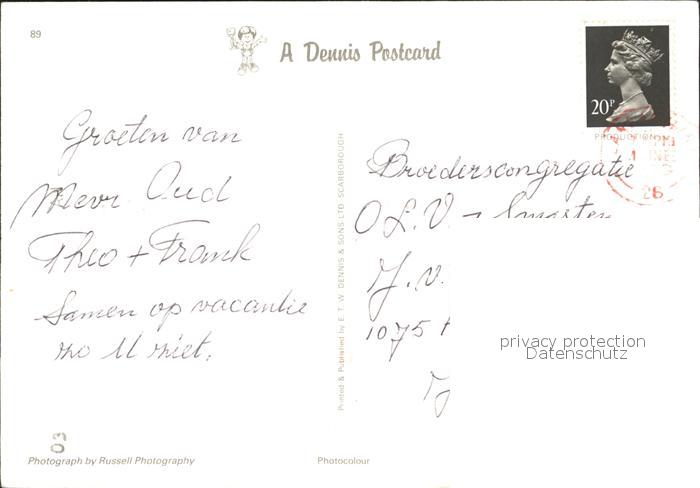 89
A Dennis Postcard
20P
PRODUCTION
Groeten van
Mevr. Oud
Theo + Frank
Samen op vacantie
zo U ziet.
Printed & Published by E. T. W. DENNIS & SONS LTD. SCARBOROUGH
Broederscongregatie
O L. V -
J. V.
1075
privacy protection
Datenschutz
28
03
Photograph by Russell Photography
Photocolour